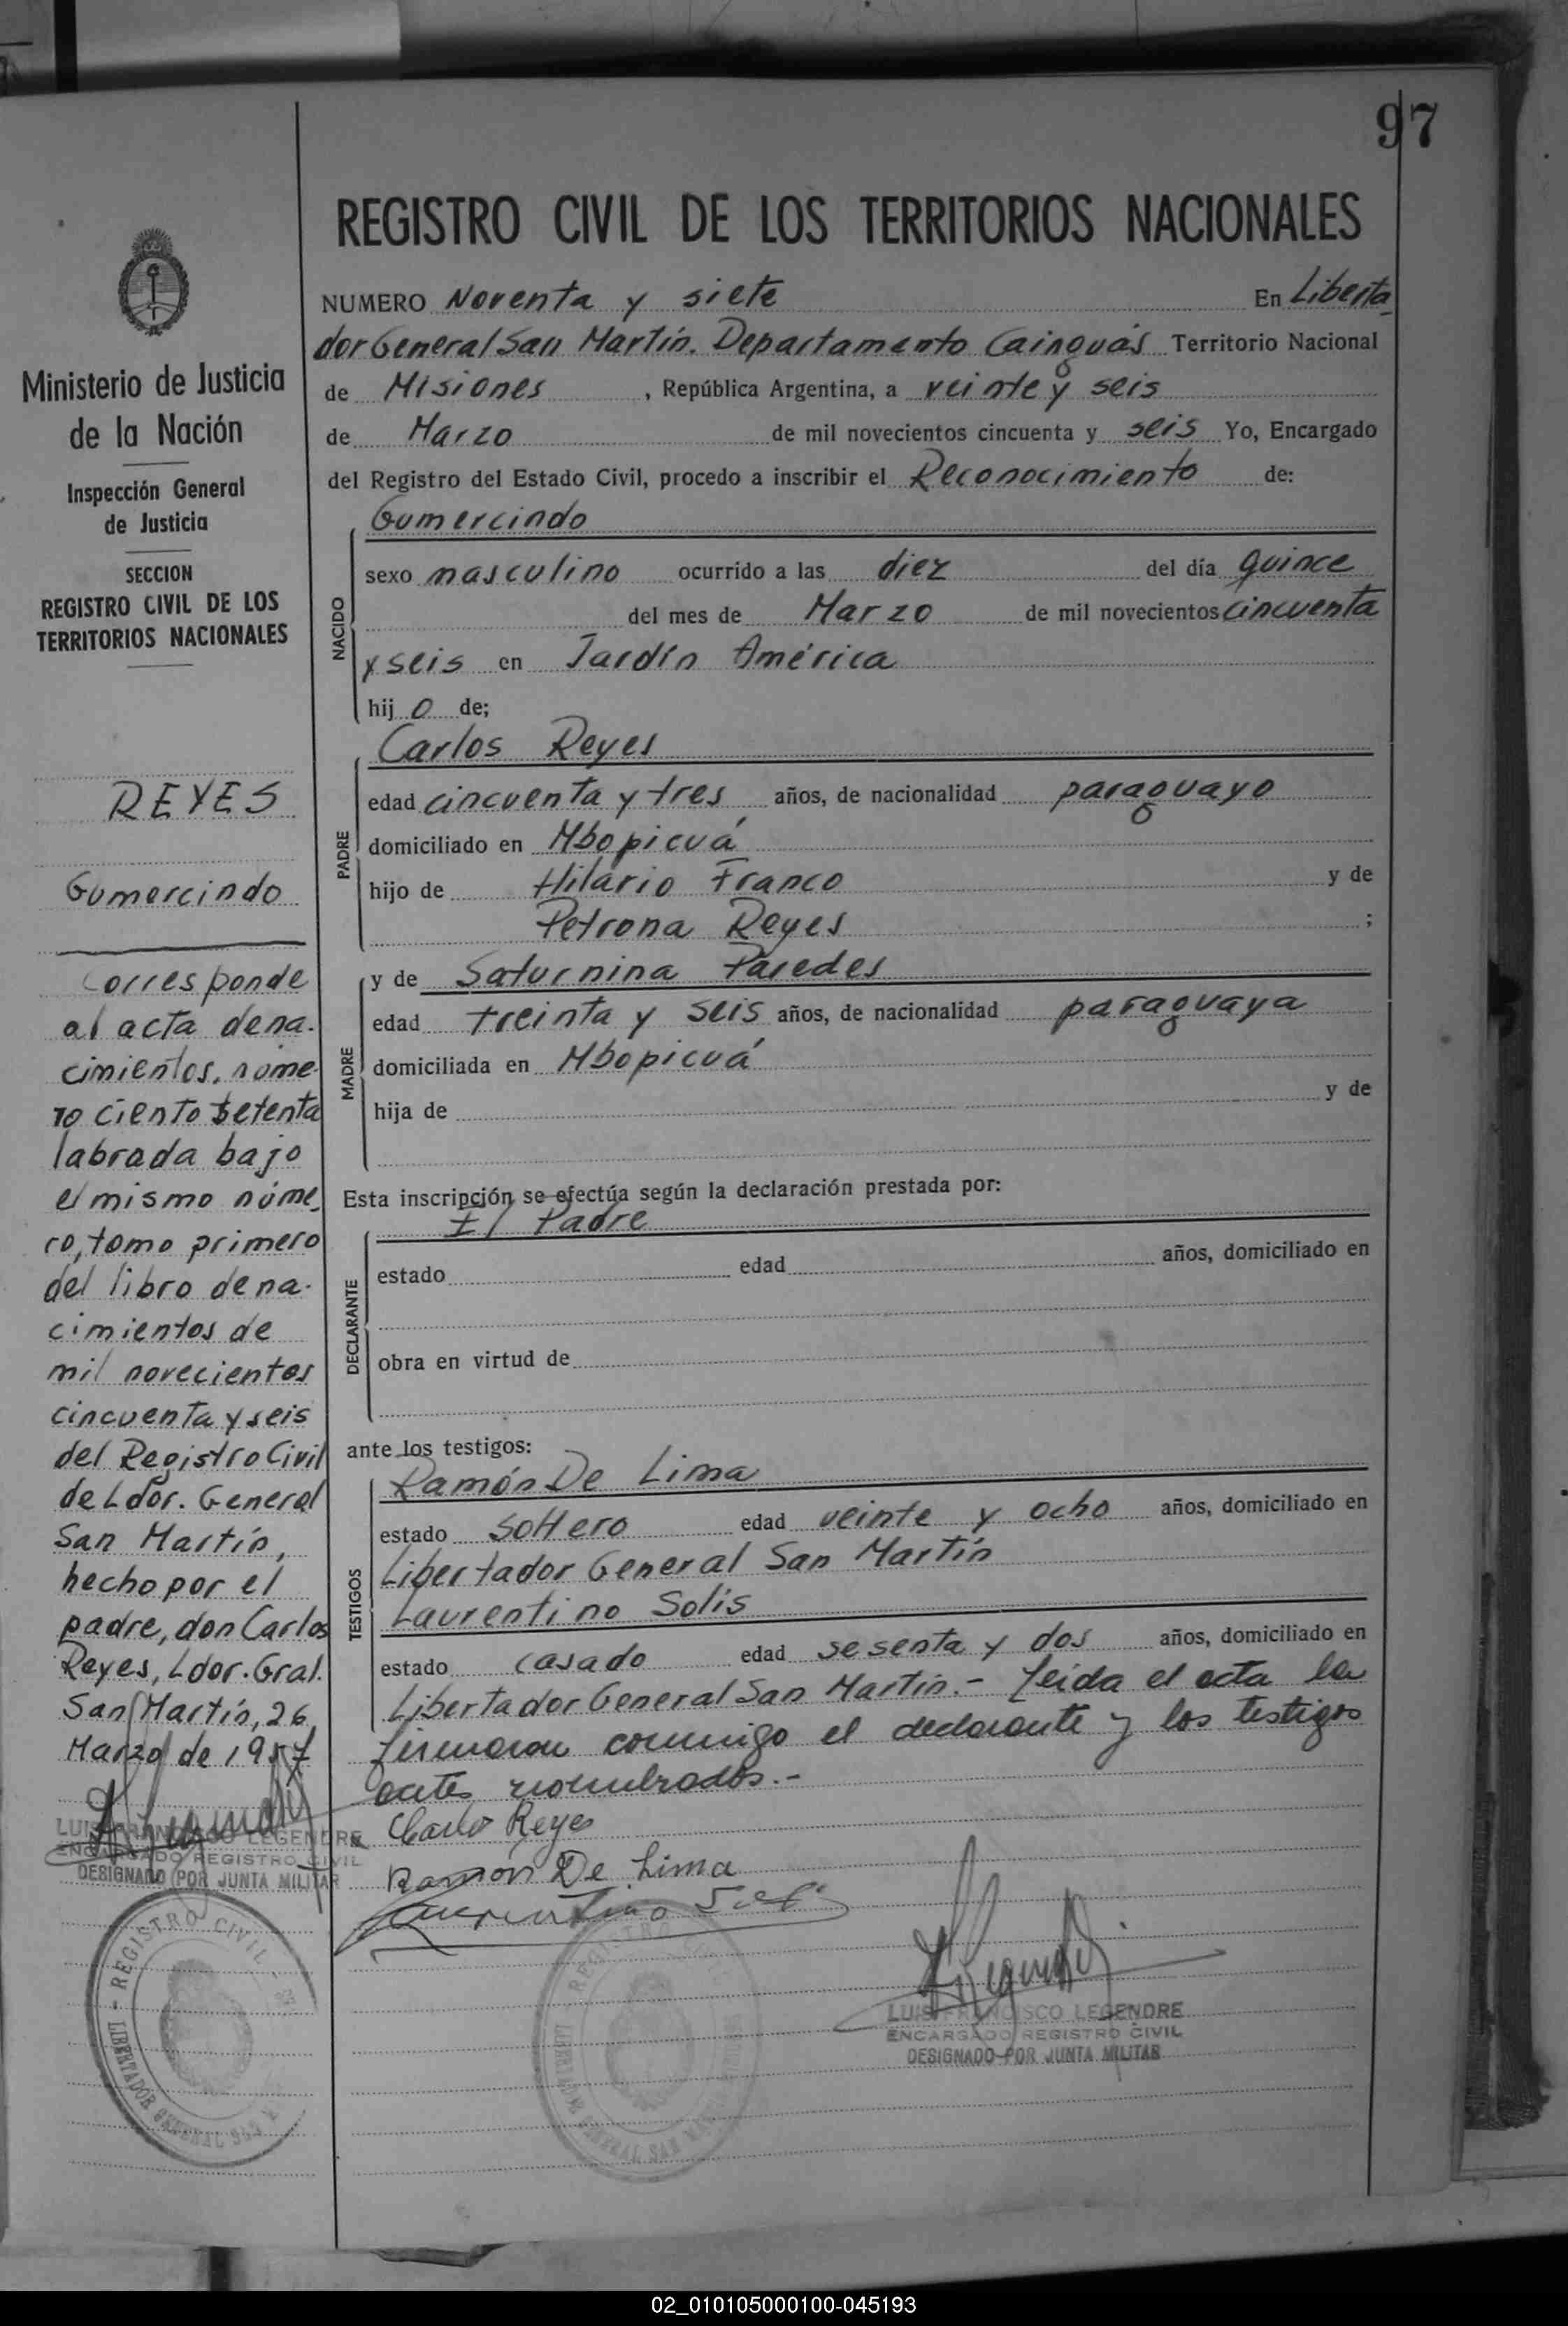 97
REGISTRO CIVIL DE LOS TERRITORIOS NACIONALES
NUMERO Noventa y siete En Liberta
dor General San Martín. Departamento Cainguás Territorio Nacional
de Misiones , República Argentina, a veinte y seis
de Marzo de mil novecientos cincuenta y seis Yo, Encargado
del Registro del Estado Civil, procedo a inscribir el Reconocimiento de:
NACIDO
Gumercindo
sexo masculino ocurrido a las diez del día quince
del mes de Marzo de mil novecientos cincuenta
y seis en Jardín América
hij o de;
PADRE
Carlos Reyes
edad cincuenta y tres años, de nacionalidad paraguayo
domiciliado en Mbopicuá
hijo de Hilario Franco y de
Petrona Reyes ;
MADRE
y de Saturnina Paredes
edad treinta y seis años, de nacionalidad paraguaya
domiciliada en Mbopicuá
hija de y de
Esta inscripción se efectúa según la declaración prestada por:
El Padre
DECLARANTE
estado edad años, domiciliado en
obra en virtud de
ante los testigos:
TESTIGOS
Ramón De Lima
estado soltero edad veinte y ocho años, domiciliado en
Libertador General San Martín
Laurentino Solis
estado casado edad sesenta y dos años, domiciliado en
Libertador General San Martín.- Leida el acta la
firmaron conmigo el declarante y los testigos
antes nombrados.-
Carlo Reyes
Ramón De Lima
Laurentino Solis
LUIS FRANCISCO LEGENDRE
ENCARGADO REGISTRO CIVIL
DESIGNADO POR JUNTA MILITAR
REGISTRO CIVIL
LIBERTADOR GENERAL SAN MARTIN
Ministerio de Justicia
de la Nación
Inspección General
de Justicia
SECCION
REGISTRO CIVIL DE LOS
TERRITORIOS NACIONALES
REYES
Gumercindo
Corresponde
al acta de na-
cimientos, núme-
ro ciento setenta
labrada bajo
el mismo núme_
ro, tomo primero
del libro de na-
cimientos de
mil novecientos
cincuenta y seis
del Registro Civil
de Ldor. General
San Martín,
hecho por el
padre, don Carlos
Reyes, Ldor. Gral.
San Martín, 26
Marzo de 1957
LUIS FRANCISCO LEGENDRE
ENCARGADO REGISTRO CIVIL
DESIGNADO POR JUNTA MILITAR
REGISTRO CIVIL
LIBERTADOR GENERAL SAN
02_010105000100-045193